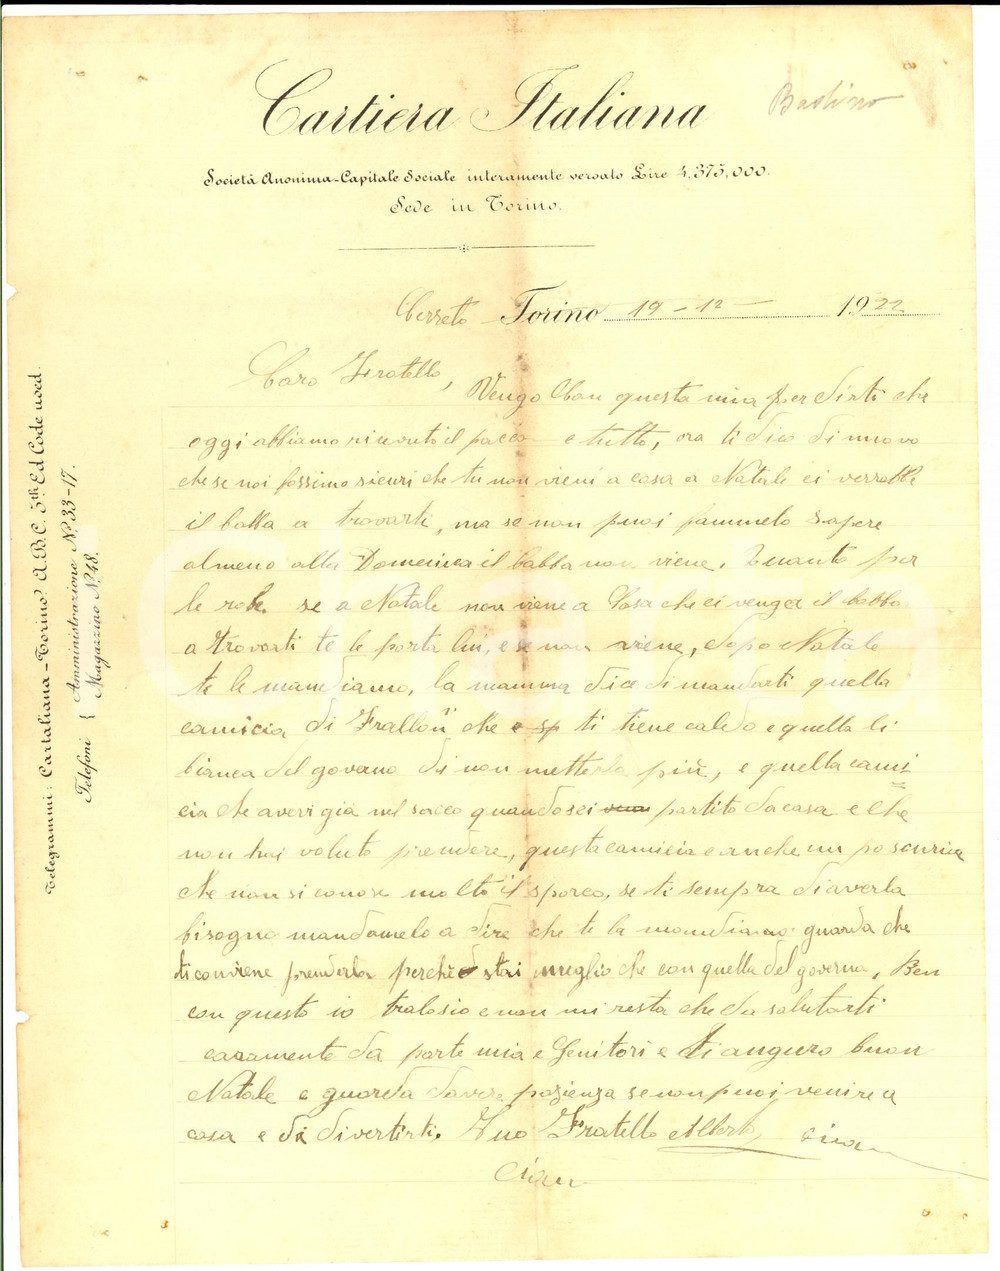 Cartiera Italiana
Società Anonima-Capitale Sociale interamente versato Lire 4,375,000.
Sede in Torino.
Cerreto Torino 19-12- 1922
Caro Fratello,
Vengo Con questa mia per dirti che
oggi abbiamo ricevuto il pacco e tutto, ora ti dico di nuovo
che se noi fossimo sicuri che tu non vieni a casa a Natale ci verrebbe
il babba a trovarti, ma se non puoi fammelo sapere
almeno alla Domenica il babba non viene. Quanto per
le robe. se a Natale non viene a Casa che ci venga il babbo
a trovarti te le porta lui, e se non viene, dopo Natale
te le mandiamo, la mamma dice di mandarti quella
camicia di Frallon che ti tiene caldo e quella li
bianca del governo di non metterla più, e quella cami
cia che averi già nel sacco quando sei partito da casa e che
non hai voluto prendere, questa camicia e anche un po scurica
che non si conose molto il sporco, se ti sempra di averla
bisogno mandamelo a dire che te la mandiamo guarda che
ti conviene prenderla perchè stai meglio che con quella del governa, Ben
con questo io tralasio e non mi resta che da salutarti
caramente da parte mia e Genitori e ti auguro buon
Natale e guarda d'avere pazienza se non puoi venire a
casa e di divertirti. Tuo Fratello Alberto, ciau
Ciau
Telegrammi: Cartaliana-Torino. A.B.C. 5th Ed Code used.
Telefoni { Amministrazione N.º 33-17.
Magazzino N.º 48.